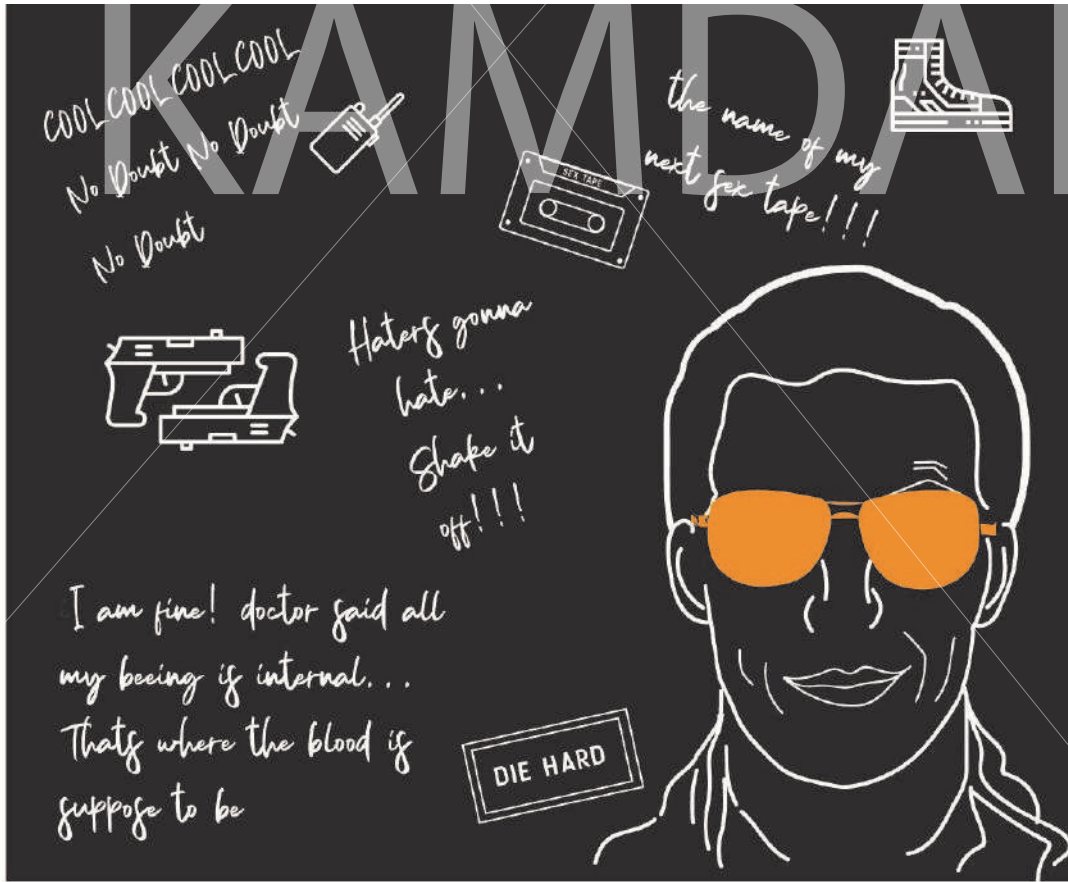 KAMDAI
COOL COOL COOL COOL
No Doubt No Doubt
No Doubt
SEX TAPE
the name of my
next sex tape!!!
Haters gonna
hate...
Shake it
off!!!
I am fine! doctor said all
my beeing is internal...
Thats where the blood is
suppose to be
DIE HARD